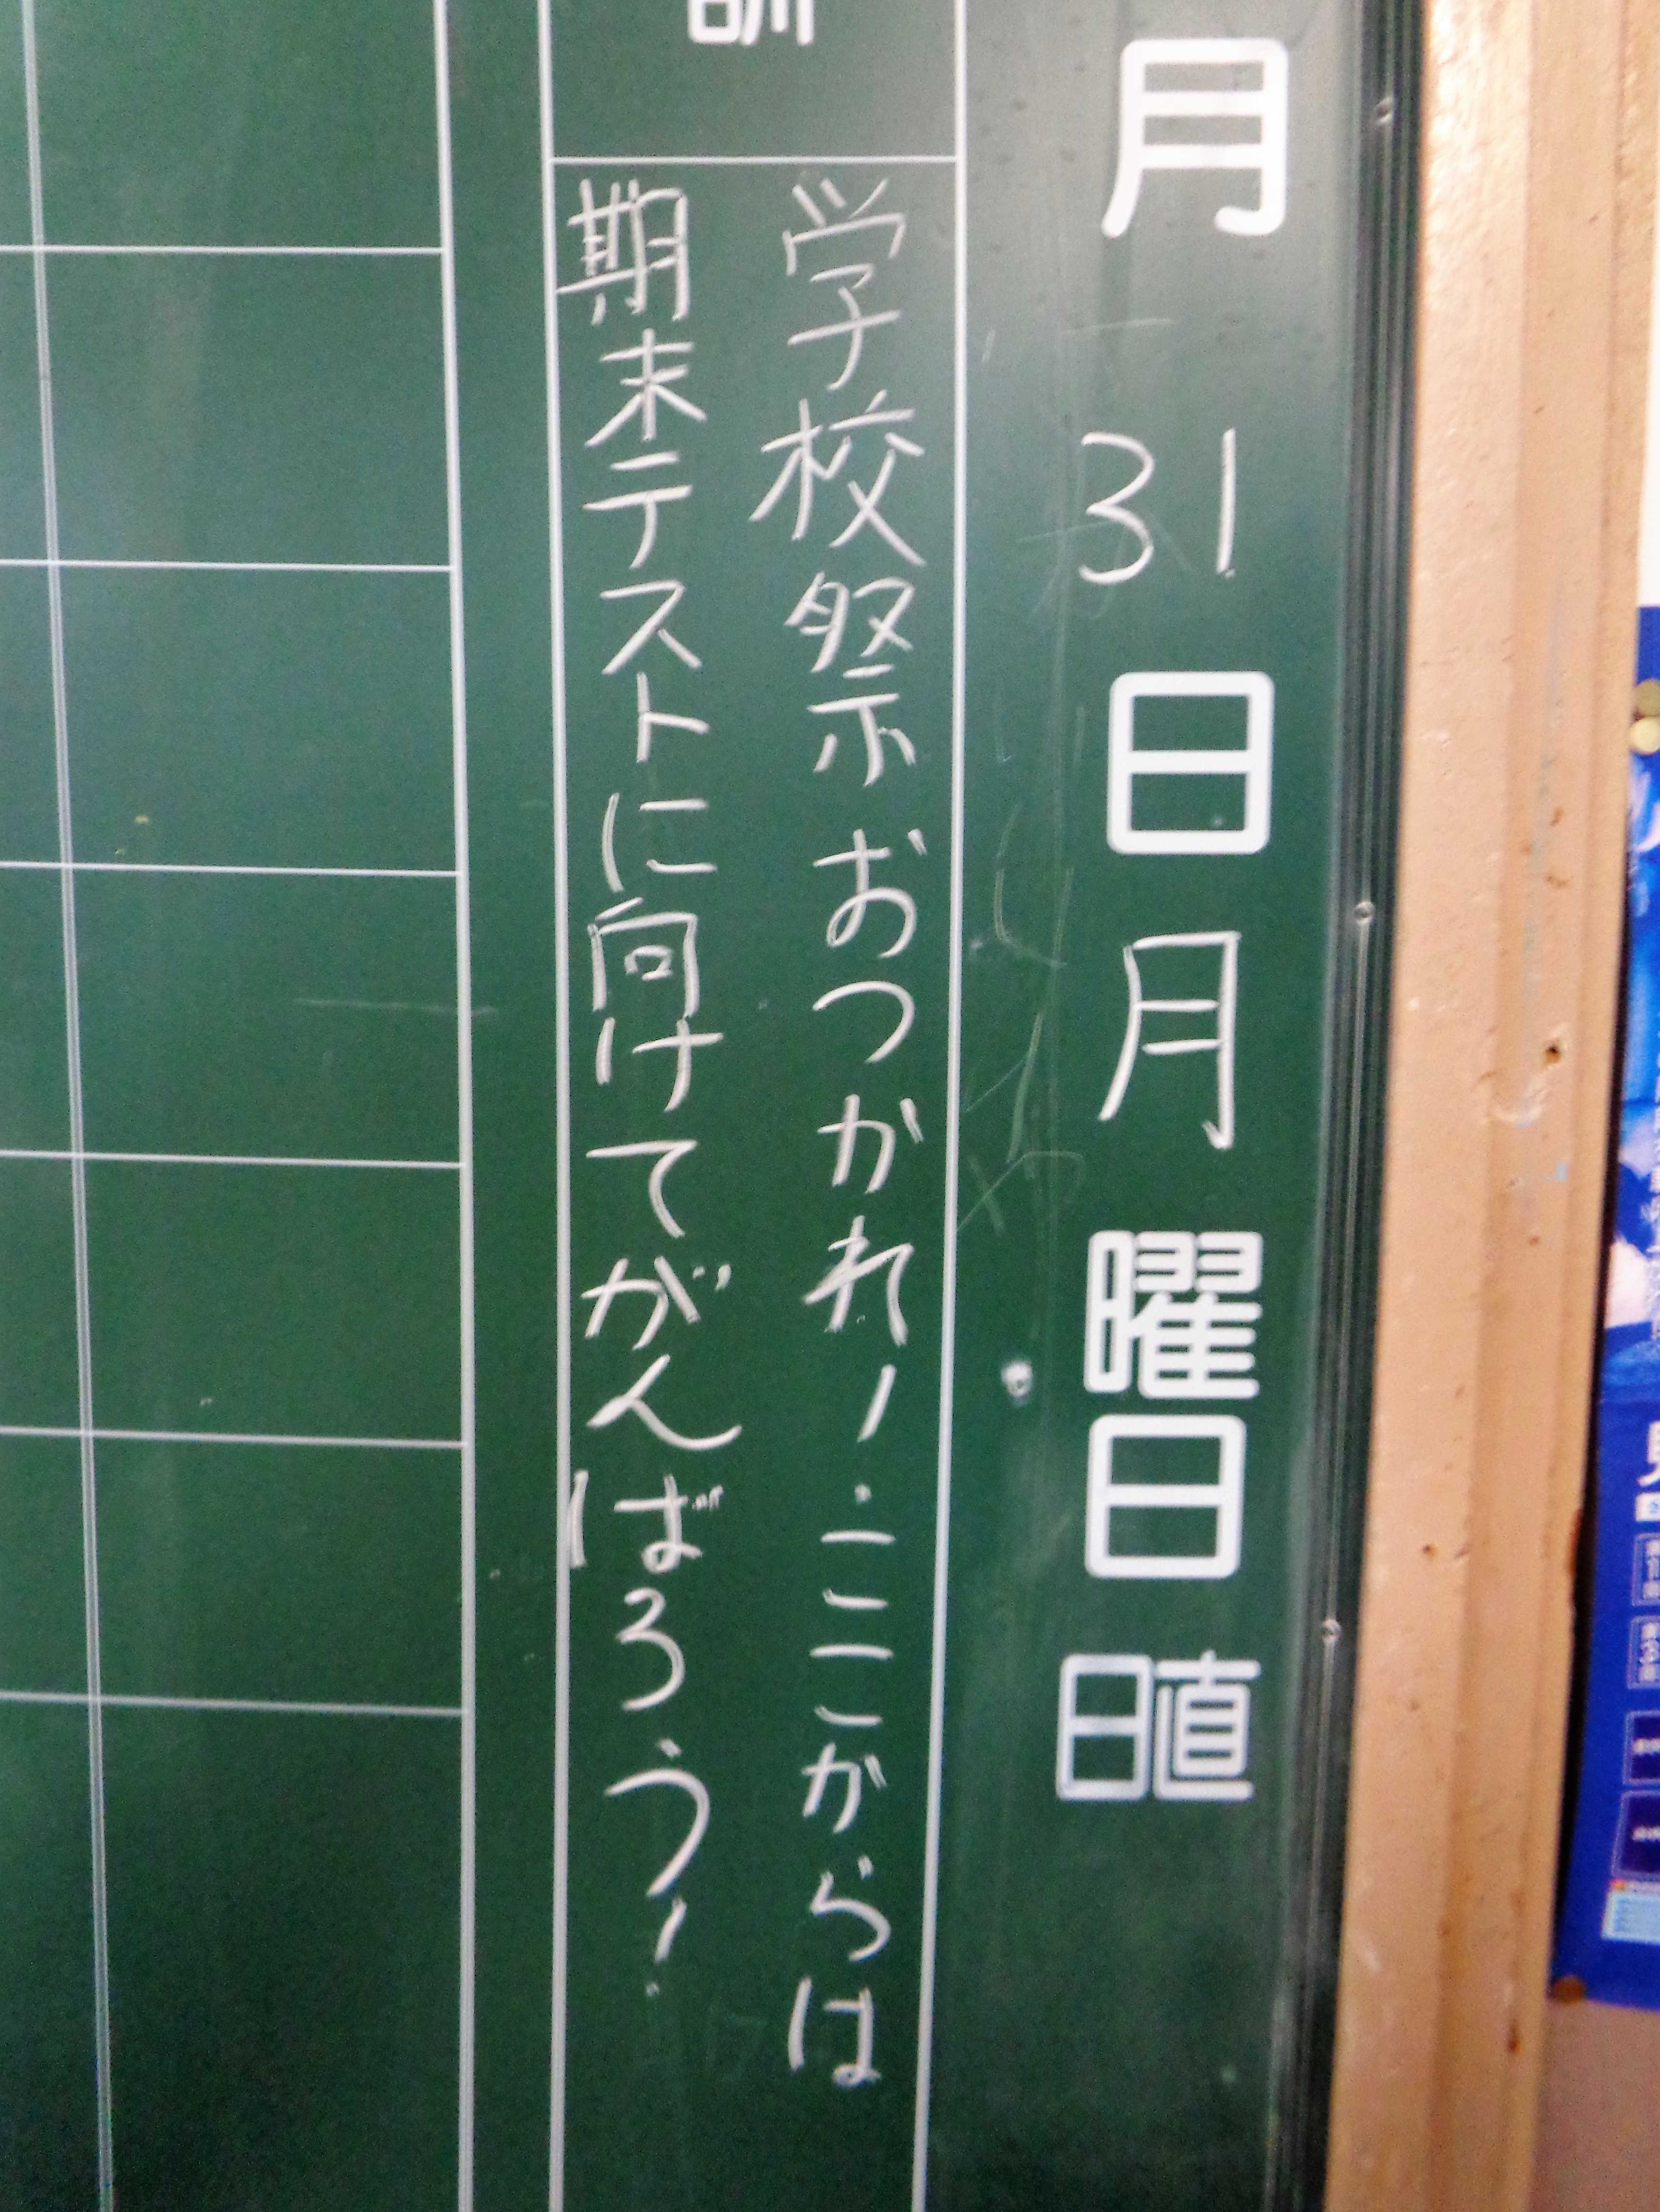 月 31 日 月 曜日 日直
訓
学校祭おつかれ!ここからは
期末テストに向けてがんばろう!